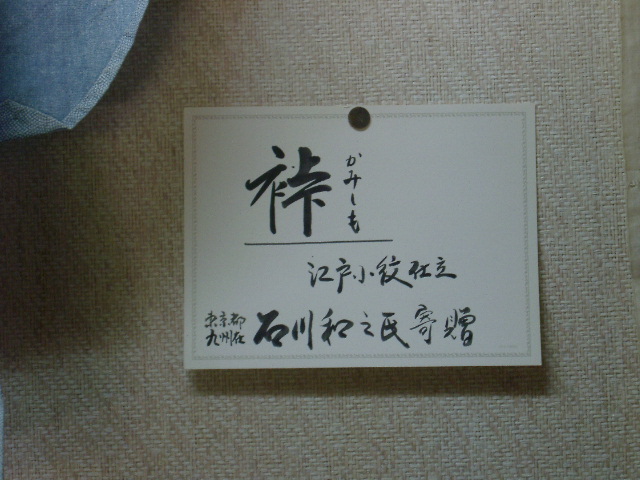 裃
かみしも
江戸小紋仕立
東京都
九州在
石川和之氏寄贈